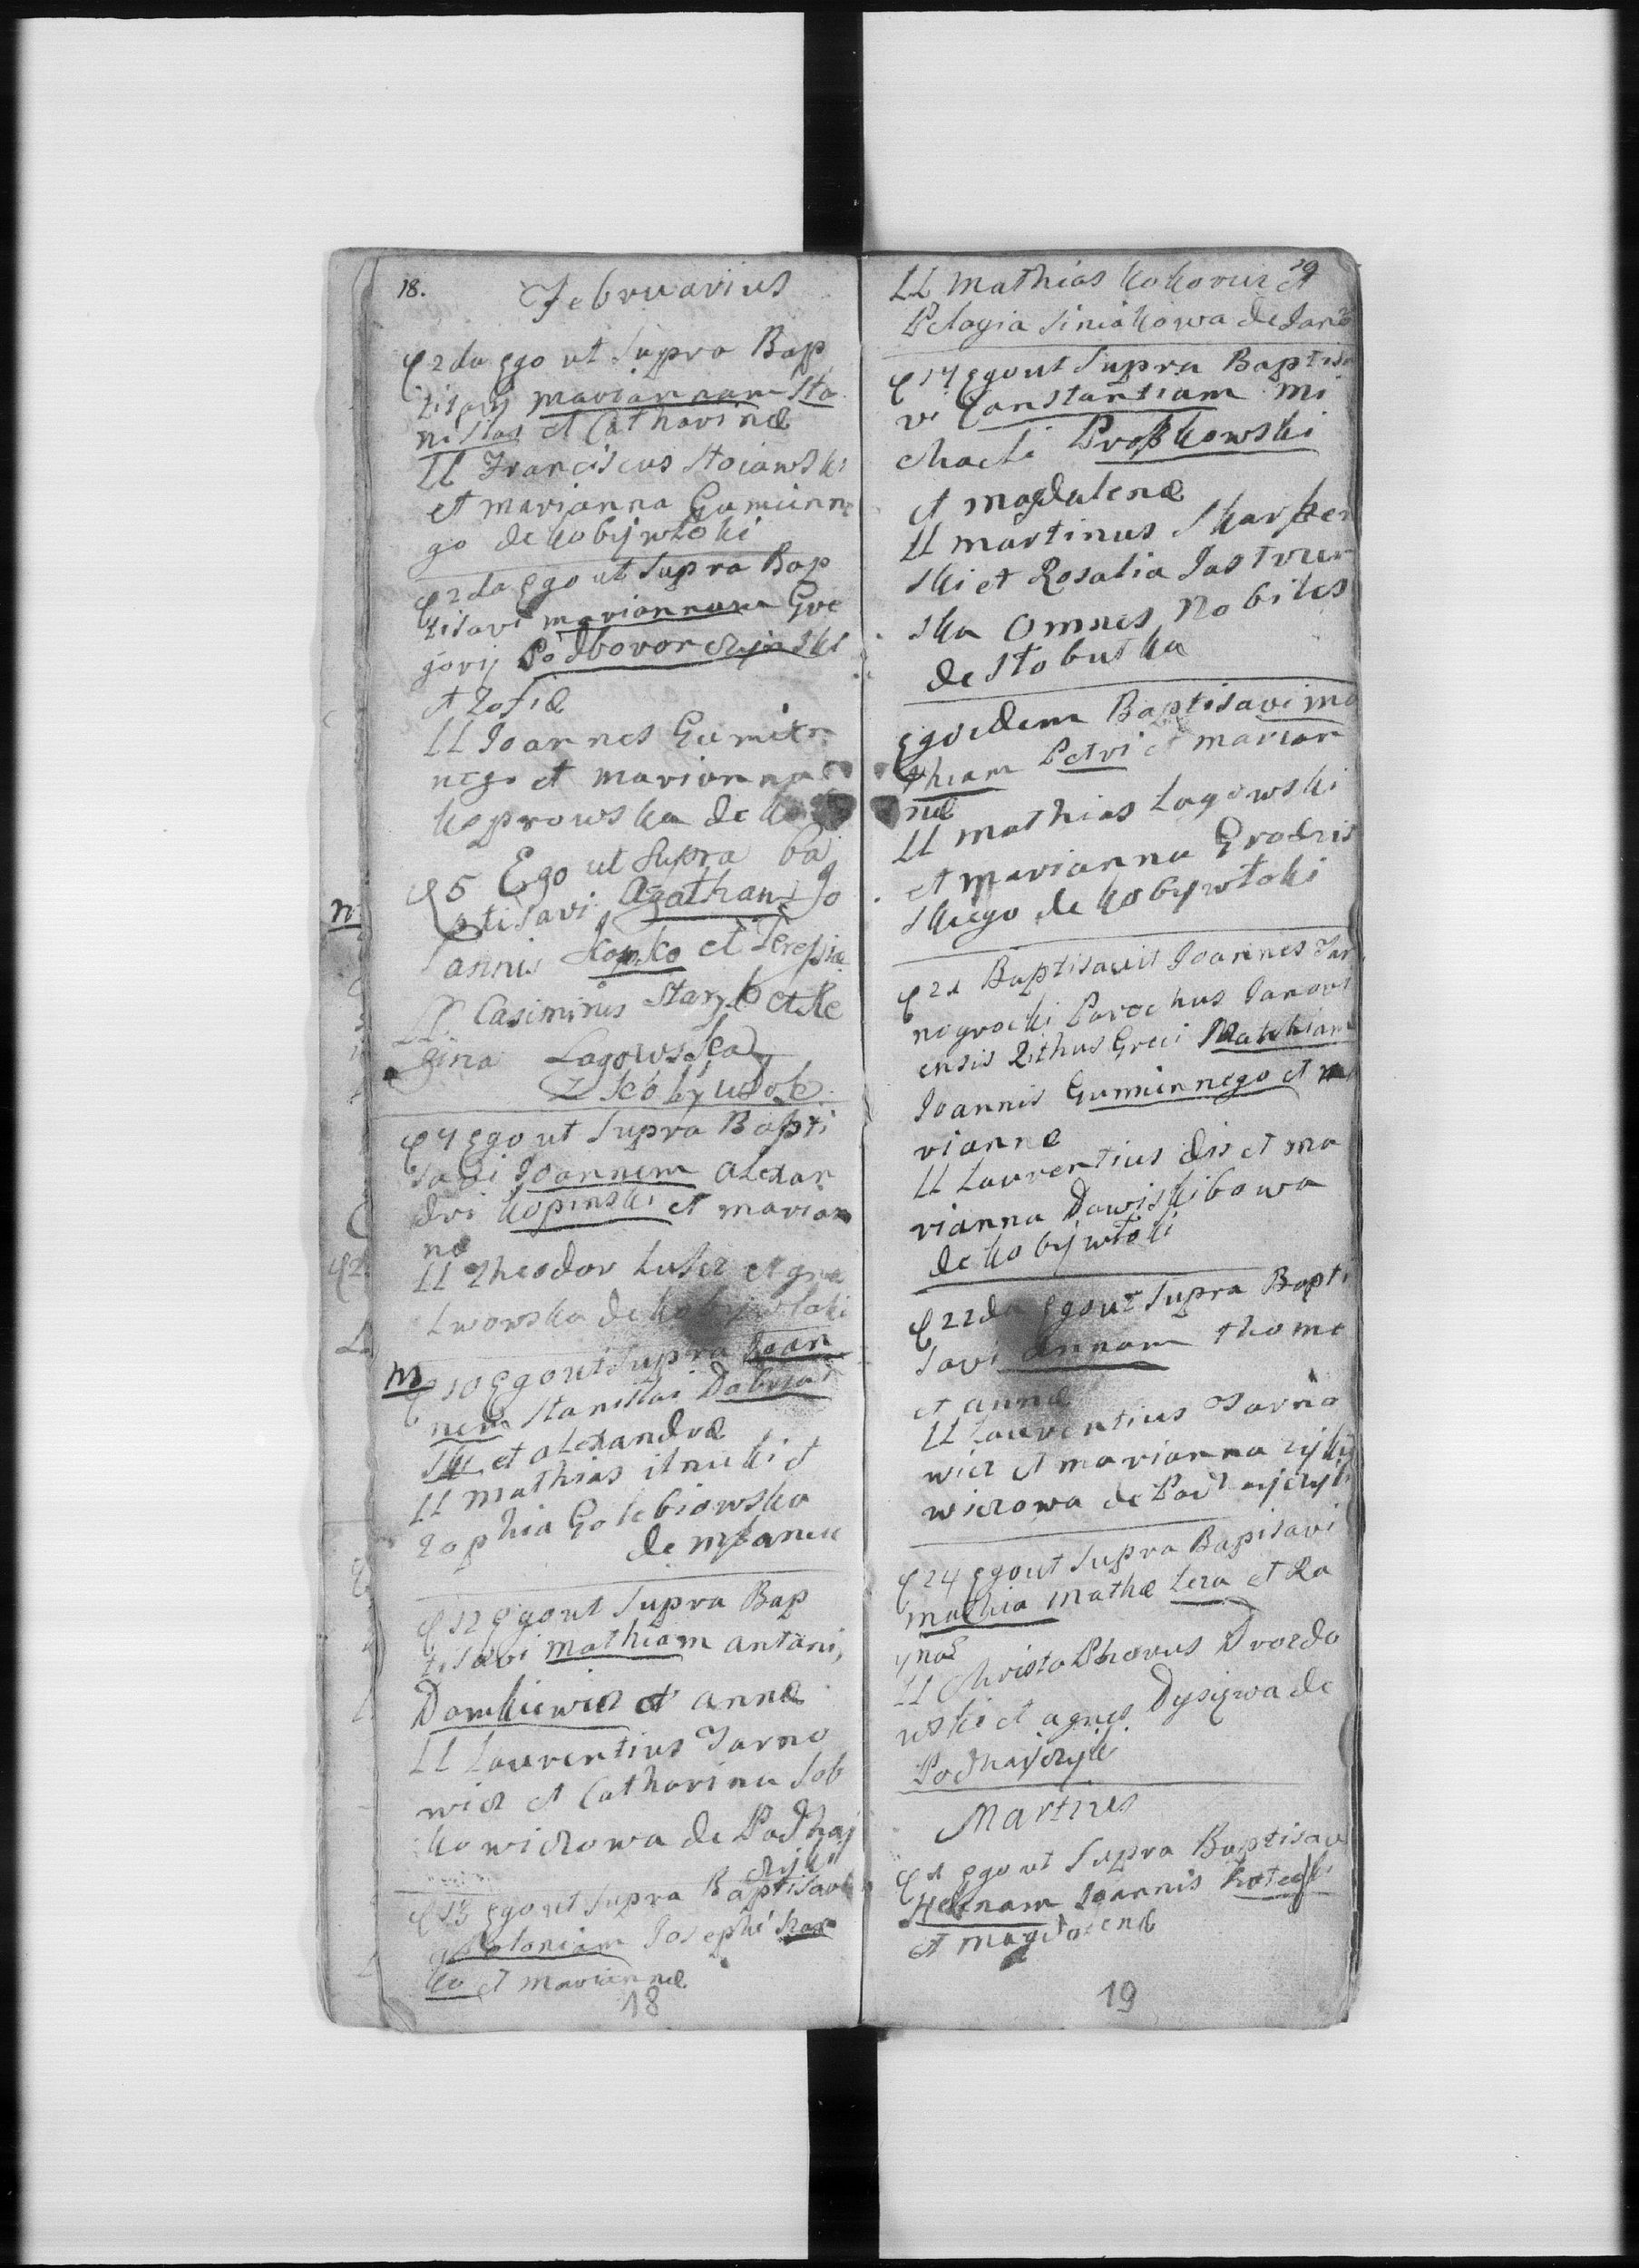 18.
Februarius
2da Ego ut Supra Bap
tisavi mariannam Sta
nislai et Catharinæ
LL Franciscus Stoiawski
et marianna Gumienne
go de Kobijwłoki
2da Ego ut Supra Bap
tisavi mariannam Gre
gorij Podhovorczijnski
et Zofiæ
LL Joannes Gumien
nego et marianna
Koprowska de
n
5 Ego ut Supra ba
ptisavi Agatham Jo
annis Kopko et Teresiæ
LL Casimirus Stary et Re
gina Lagowska
z Kobywłok
7 Ego ut Supra Bapti
savi Joannem Alexan
dri Kopinski et marian
næ
LL Theodor Lusez et
Lwowska de Kobijwłoki
m
10 Ego ut Supra Joan
nem Stanislai
ski et alexandræ
LL mathias ilnicki et
Zophia Golebiowska
de młanice
12 Ego ut Supra Bap
tisavi mathiam antoni
Domkiewicz et annæ
LL Laurentius Tarno
wicz et Catharina Sob
kowiczowa de Podhaj
czijki
13 Ego ut Supra Baptisavi
Josephi
ko et mariannæ
18
19
LL mathias Kokorus et
Pelagia Siniakowa de Jano
17 Ego ut Supra Baptisa
vi Constantiam mi
chaeli
et magdalenæ
LL martinus
ski et Rosalia Jastrzem
ska Omnes Nobiles
de Słobutka
Ego idem Baptisavi ma
thiam Petri et marian
næ
LL mathias Lagowski
et marianna Grodzis
kiego de Kobijwłoki
21 Baptisavit Joannes Tar
nogrocki Parochus Janovi
ensis Rithus Greci Mathiam
Joannis Gumiennego et ma
riannæ
LL Laurentius dis et ma
rianna Dawiskibowa
de Kobijwłoki
22da Ego ut Supra Bapti
savi annam thome
et annæ
LL Laurentius Tarno
wicz et marianna
wiczowa de Podhajczyki
24 Ego ut Supra Bapisavi
mathia mathæ Leza et Ra
ynæ
LL ChristoPhorus Drozdo
wski et agnes de
Podhajczyki
Martius
1 Ego ut Supra Baptisavi
Helenam Joannis
et magdalenæ
19